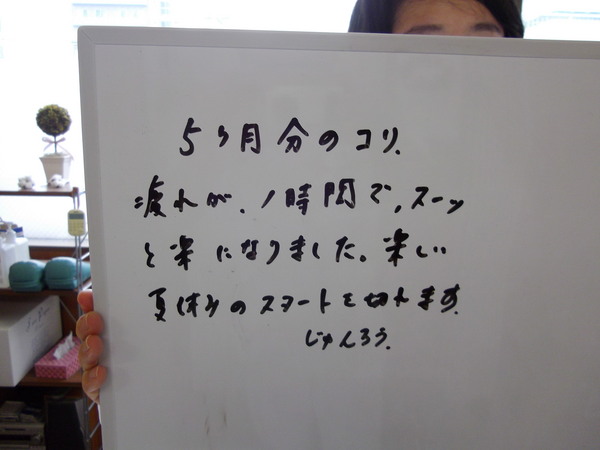 5ヶ月分のコリ、
疲れが、1時間で、スーッ
と楽になりました。楽しい
夏休みのスタートを切れます。
じゅんろう。